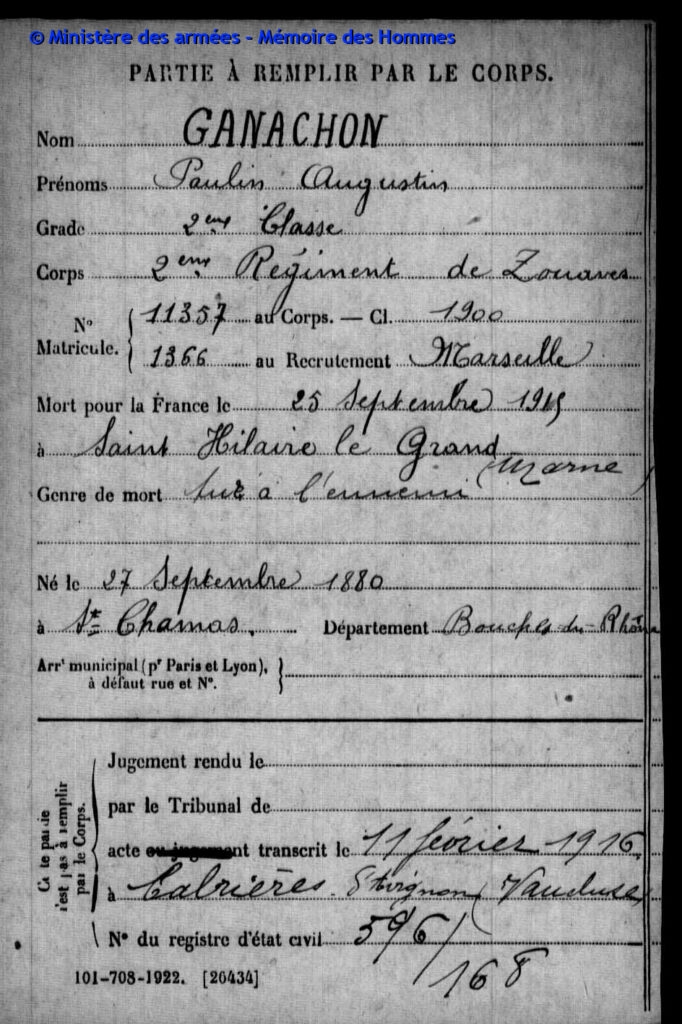 © Ministère des armées - Mémoire des Hommes
PARTIE À REMPLIR PAR LE CORPS.
Nom GANACHON
Prénoms Paulin Augustin
Grade 2ème Classe
Corps 2ème Régiment de Zouaves
N° Matricule. { 11357 au Corps. — Cl. 1900
1366 au Recrutement Marseille
Mort pour la France le 25 Septembre 1915
à Saint Hilaire le Grand
(Marne)
Genre de mort tué à l'ennemi
Né le 27 Septembre 1880
à St Chamas. Département Bouches-du-Rhône
Arrt municipal (pr Paris et Lyon), à défaut rue et N°. }
Cette partie n'est pas à remplir par le Corps.
Jugement rendu le
par le Tribunal de
acte ou jugement transcrit le 11 février 1916
à Cabrières d'Avignon (Vaucluse)
N° du registre d'état civil 596/
168
101-708-1922. [26434]